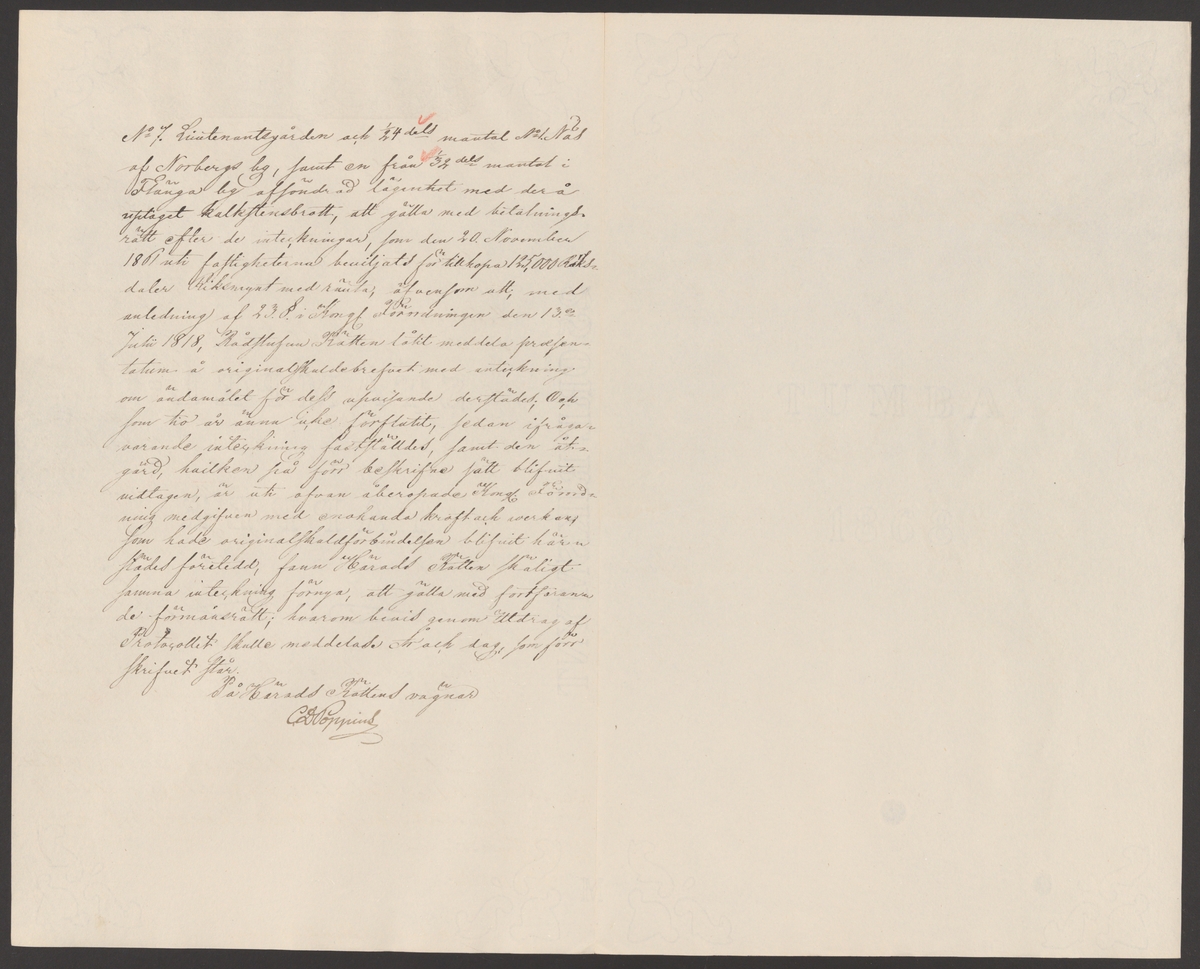 No 7. Lieutenantsgården och 1/24 dels mantal No 1. Näs
af Norbergs by, samt en från 1/32 dels mantal i
Flänga by afsöndrad lägenhet med der å
uptaget kalkstensbrott, att gälla med betalnings-
rätt efter de inteckningar, som den 20. November
1861 uti fastigheterna beviljats för tillhopa 125,000 Riks-
daler Riksmynt med ränta; äfvensom att, med
anledning af 23. §. i Kongl Förordningen den 13.de
Julii 1818, Rådstufvu Rätten låtit meddela præsen-
tatum å originalskuldebrefvet med anteckning
om ändamålet för dess upvisande derstädes; Och
som tio år ännu icke förflutit, sedan ifråga-
varande inteckning fastställdes, samt den åt-
gärd, hvilken på förr beskrifne sätt blifvit
vidtagen, är uti ofvan åberopade Kongl Förord-
ning medgifven med enahanda kraft och verkan,
som hade originalskuldförbindelsen blifvit här-
städes företedd, fann Härads Rätten skäligt
samma inteckning förnya, att gälla med fortfaran-
de förmånsrätt; hvarom bevis genom Utdrag af
Protocollet skulle meddelas. År och dag, som förr
skrifvet står.
På Härads Rättens vägnar
C D Poppius